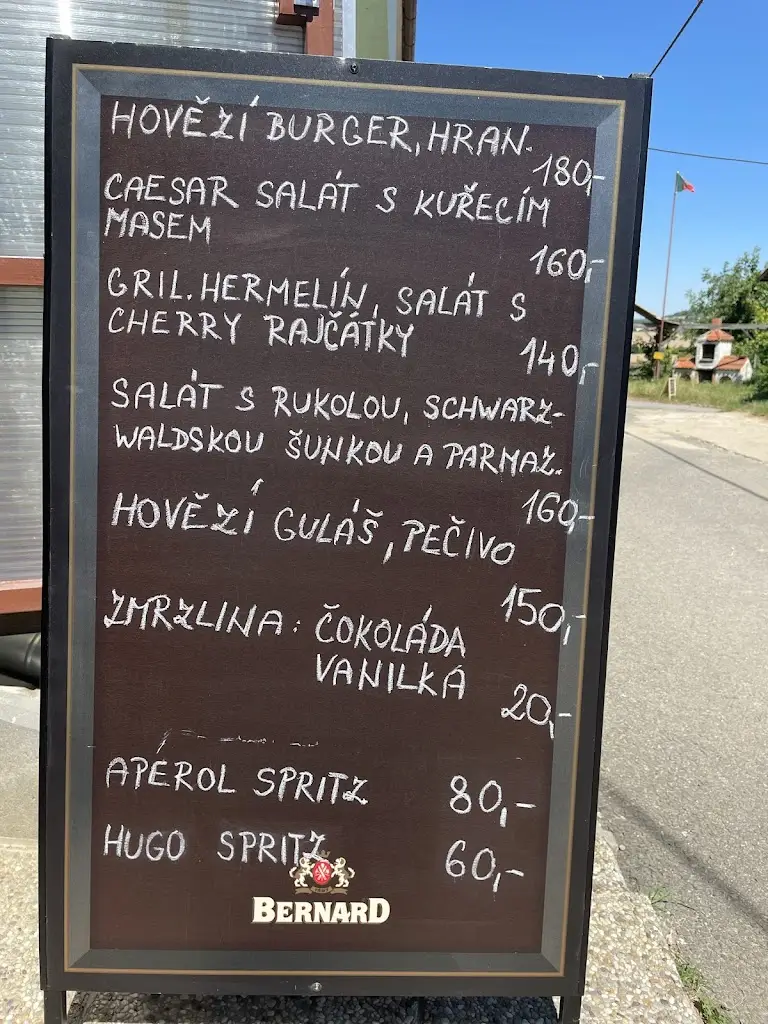 HOVĚZÍ BURGER, HRAN.
180,-
CAESAR SALÁT S KUŘECÍM
MASEM
160,-
GRIL. HERMELÍN, SALÁT S
CHERRY RAJČÁTKY
140,-
SALÁT S RUKOLOU, SCHWARZ-
WALDSKOU ŠUNKOU A PARMAZ.
160,-
HOVĚZÍ GULÁŠ, PEČIVO
150,-
ZMRZLINA: ČOKOLÁDA
VANILKA
20,-
APEROL SPRITZ 80,-
HUGO SPRITZ 60,-
BERNARD